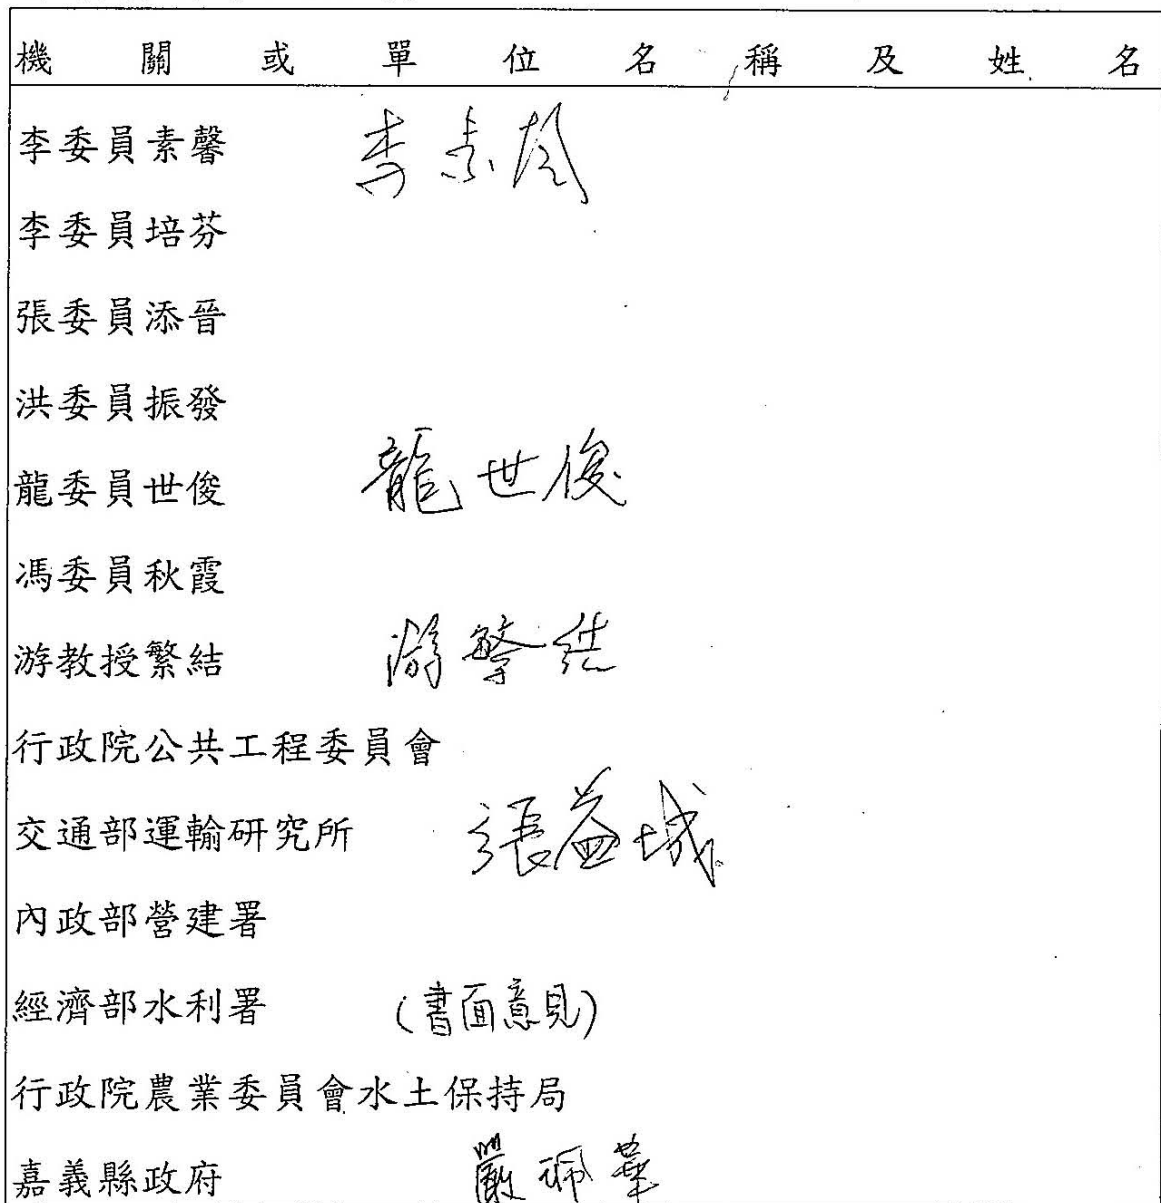 機關或單位名稱及姓名
李委員素馨 李素馨
李委員培芬
張委員添晉
洪委員振發
龍委員世俊 龍世俊
馮委員秋霞
游教授繁結 游繁結
行政院公共工程委員會
交通部運輸研究所 張益城
內政部營建署
經濟部水利署 (書面意見)
行政院農業委員會水土保持局
嘉義縣政府 嚴珮華